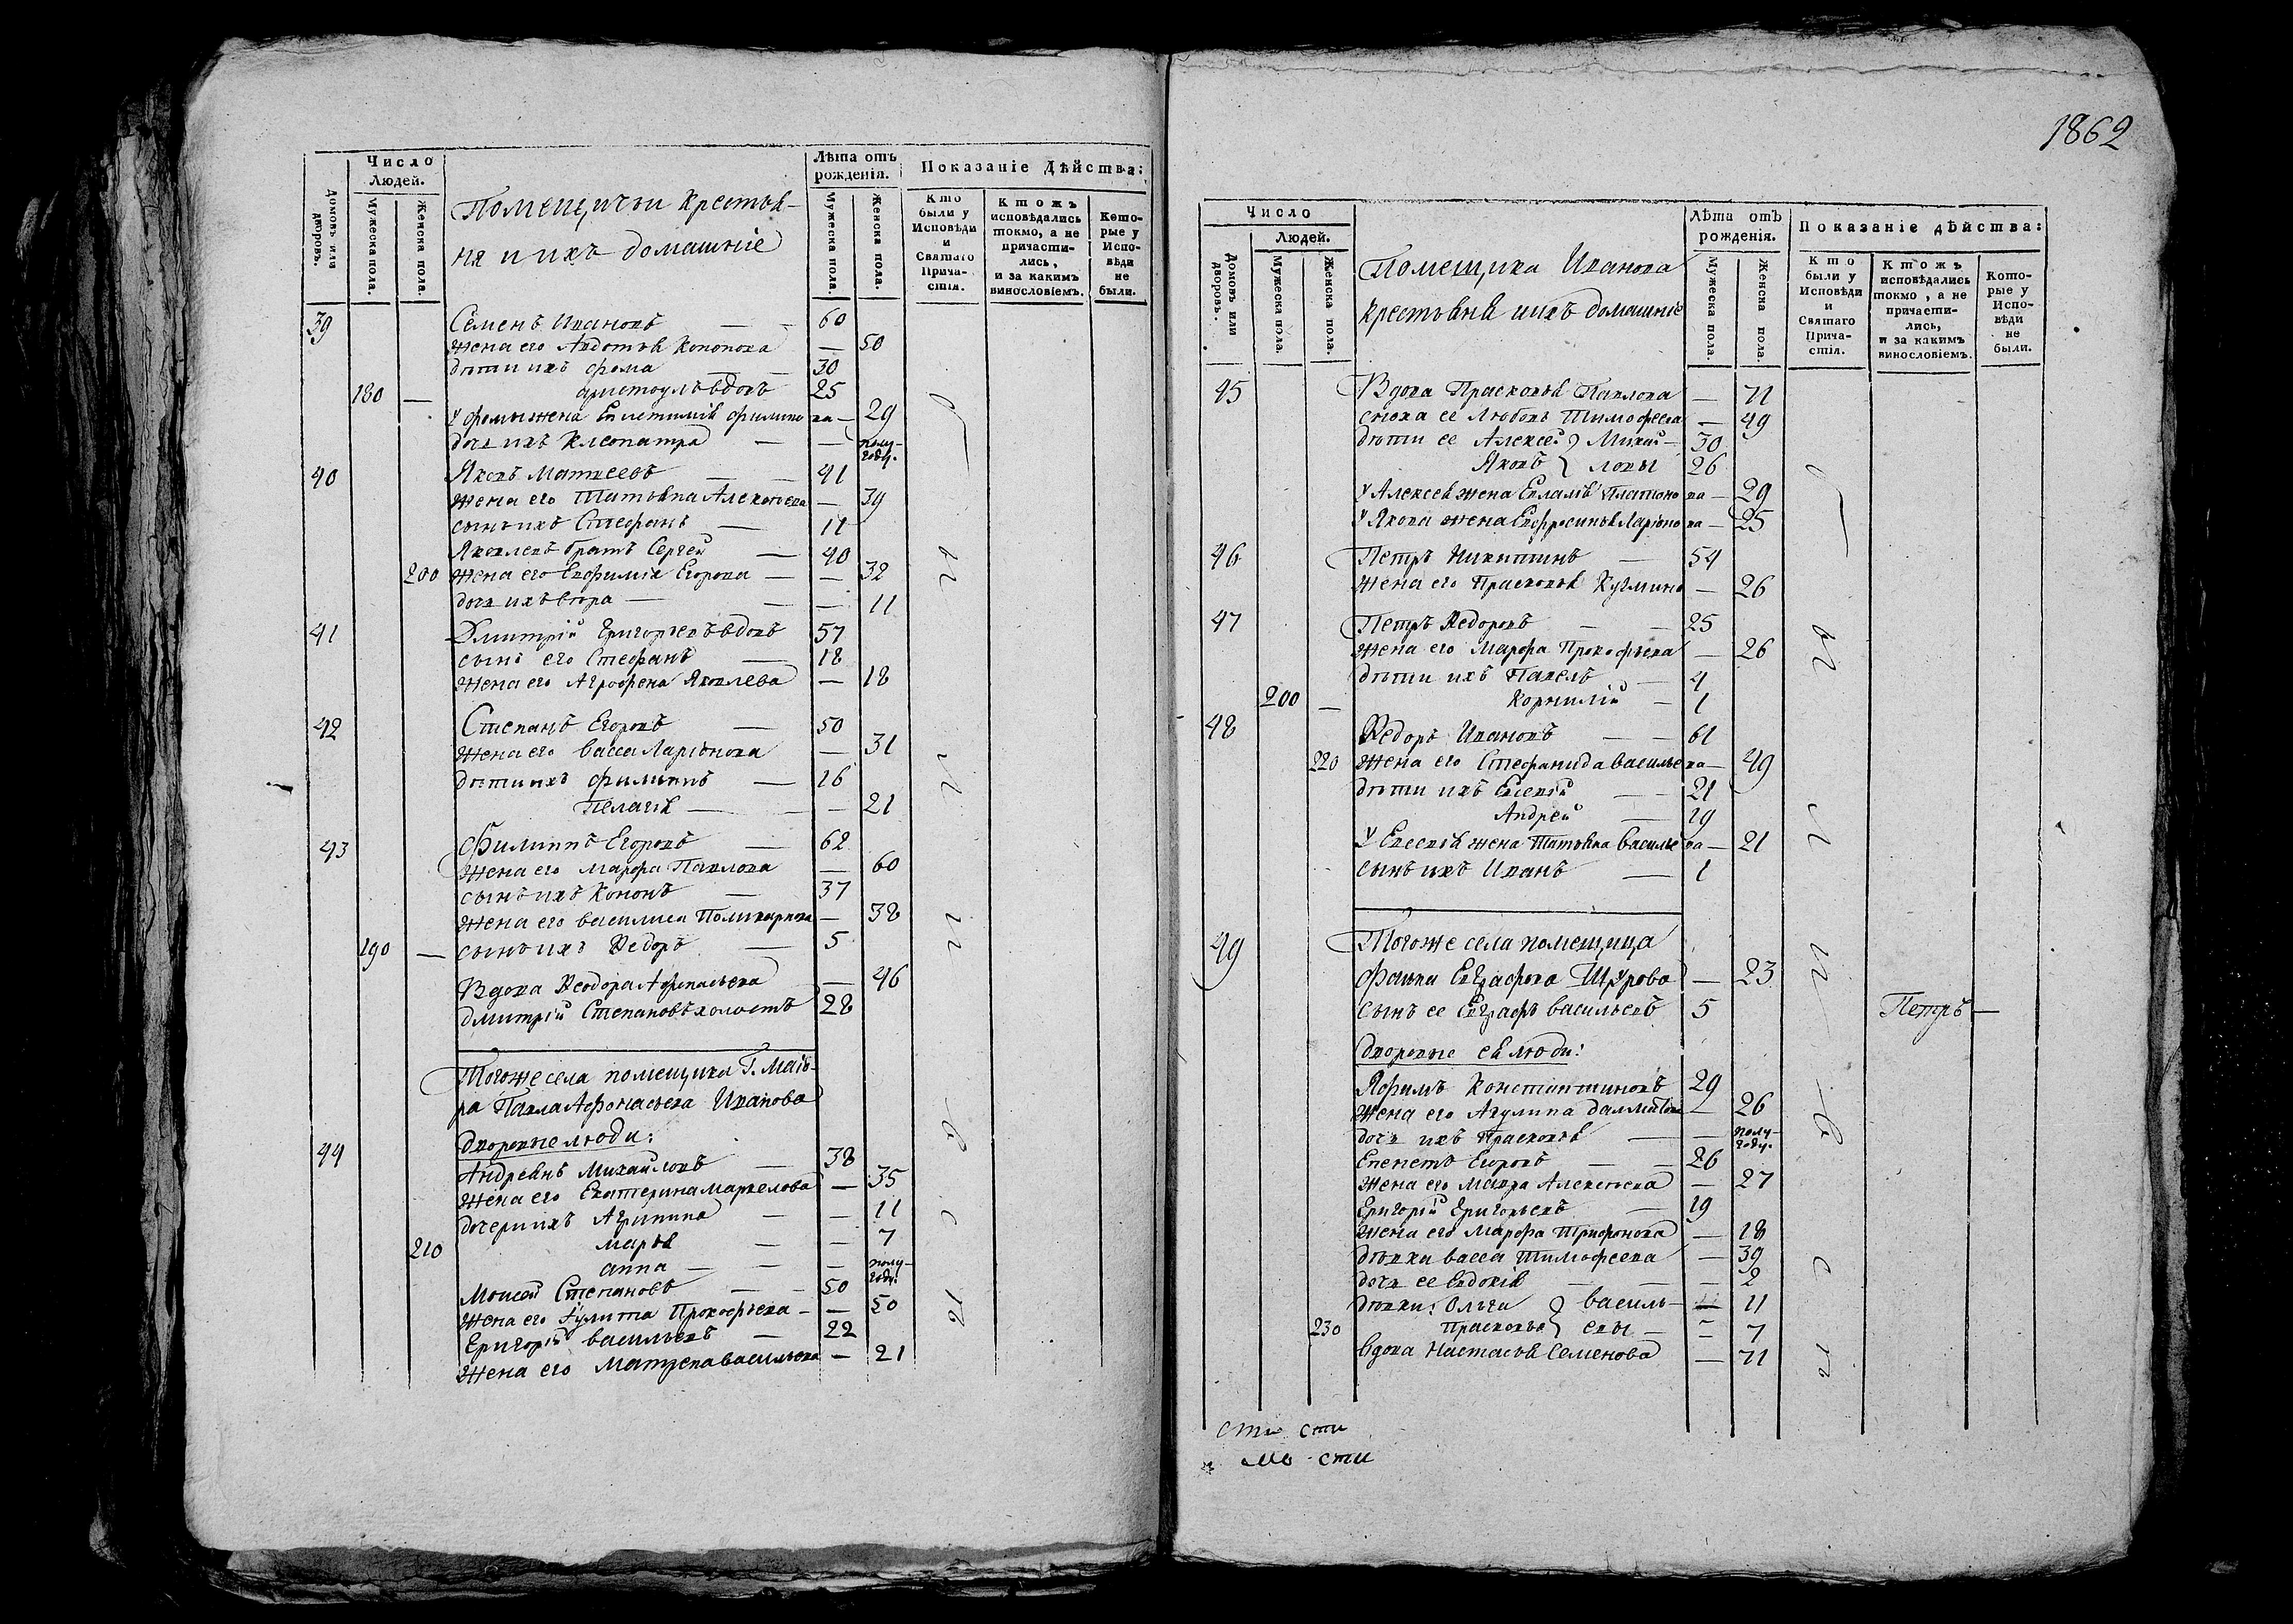 Число Людей.
Домовъ или дворовъ.
Мужеска пола.
Женска пола.
Помещичьи крестья-
ня и ихъ домашніе
Лѣта отъ рожденія.
Мужеска пола.
Женска пола.
Показаніе Дѣйства:
Кто были у Исповѣди и Святаго Прича-стія.
Ктожъ исповѣдались токмо, а не причасти-лись, и за какимъ винословіемъ.
Кото-рые у Испо-вѣди не были.
39 Семенъ Ивановъ — 60
жена его Авдотья Кононова — 50
дѣти ихъ Фома — 30
180 — вдовъ 25
у Фомы жена Филипо ва — 29
дочь ихъ Клеопатра — — полу-году.
40 Яковъ Матвеевъ — 41
жена его Татьяна Алексеева — 39
сынъ ихъ Стефанъ — 11
Яковлевъ братъ Сергей — 40
200 жена его Евфимія Егорова — — 32
дочь ихъ — — 11
41 Дмитрій Григорьевъ вдовъ 57
сынъ его Стефанъ — 18
жена его Агрофена Яковлева — 18
42 Степанъ Егоровъ — 50
жена его васса Ларіонова — 31
дѣти ихъ филиппъ — 16
Пелагія — — 21
43 Филиппъ Егоровъ — 62
жена его марфа Павлова — 60
сынъ ихъ Кононъ — 37
жена его василиса Поликарпова — 38
190 — сынъ ихъ Ѳедоръ — 5
Вдова Ѳеодора Афонасьева — 46
дмитрій Степановъ холостъ 28
Тогоже села помещика Г. маіо-
ра Павла Афонасьева Иванова
44 дворовые люди:
Андреянъ Михайловъ — 38
жена его Екатерина маркелова — 35
дочери ихъ Агрипина — — 11
210 марья — — 7
анна — — — полу-году.
Моисей Степановъ — — 50
жена его Улита Прокофьева — — 50
Григорій васильевъ — 22
жена его матрена васильева — 21
были у исп
1862
Число Людей.
Домовъ или дворовъ.
Мужеска пола.
Женска пола.
Помещика Иванова
крестьяня иихъ домашніе
Лѣта отъ рожденія.
Мужеска пола.
Женска пола.
Показаніе дѣйства:
Кто были у Исповѣди и Святаго Прича-стія.
Ктожъ исповѣдались токмо, а не причасти-лись, и за какимъ винословіемъ.
Кото-рые у Испо-вѣди не были.
45 Вдова Прасковья Павлова — 71
сноха ее Любовь Тимофеева — 49
дѣти ее Алексей } Михай- 30
Яковъ } ловы 26
у Алексея жена Платоно ва — 29
у Якова жена Ефросинья Ларіоно ва — 25
46 Петръ Никитинъ — 54
жена его Прасковья Кузмина — 26
47 Петръ Ѳедоровъ — — 25
жена его Марфа Прокофьева — 26
дѣти ихъ Павелъ — 4
200 — Корнилій — 1
48 Ѳедоръ Ивановъ — — 61
220 жена его Стефанида василье ва — 49
дѣти ихъ Евсевій — — 21
Андрей — 19
у Евсевія жена Татьяна василье ва — 21
сынъ ихъ Иванъ — 1
49 Тогоже села помещица
Евграфова — 23
сынъ ее Евграфъ васильевъ 5 Петръ —
дворовые ея люди:
Яфимъ Константиновъ 29
жена его Акулина — 26
дочь ихъ Прасковья — — полу-году.
Егоровъ — — 26
жена его Мавра Алексеева — 27
Григорій Григорьевъ — 19
жена его Марфа Трифонова — 18
дѣвка васса Тимофеева — 39
дочь ее Евдокія — — — 2
дѣвки: Ольга } василь- — 11
230 Прасковья } евы — — 7
вдова Настасья Семенова — 71
были у исп
сти сти
мо сти